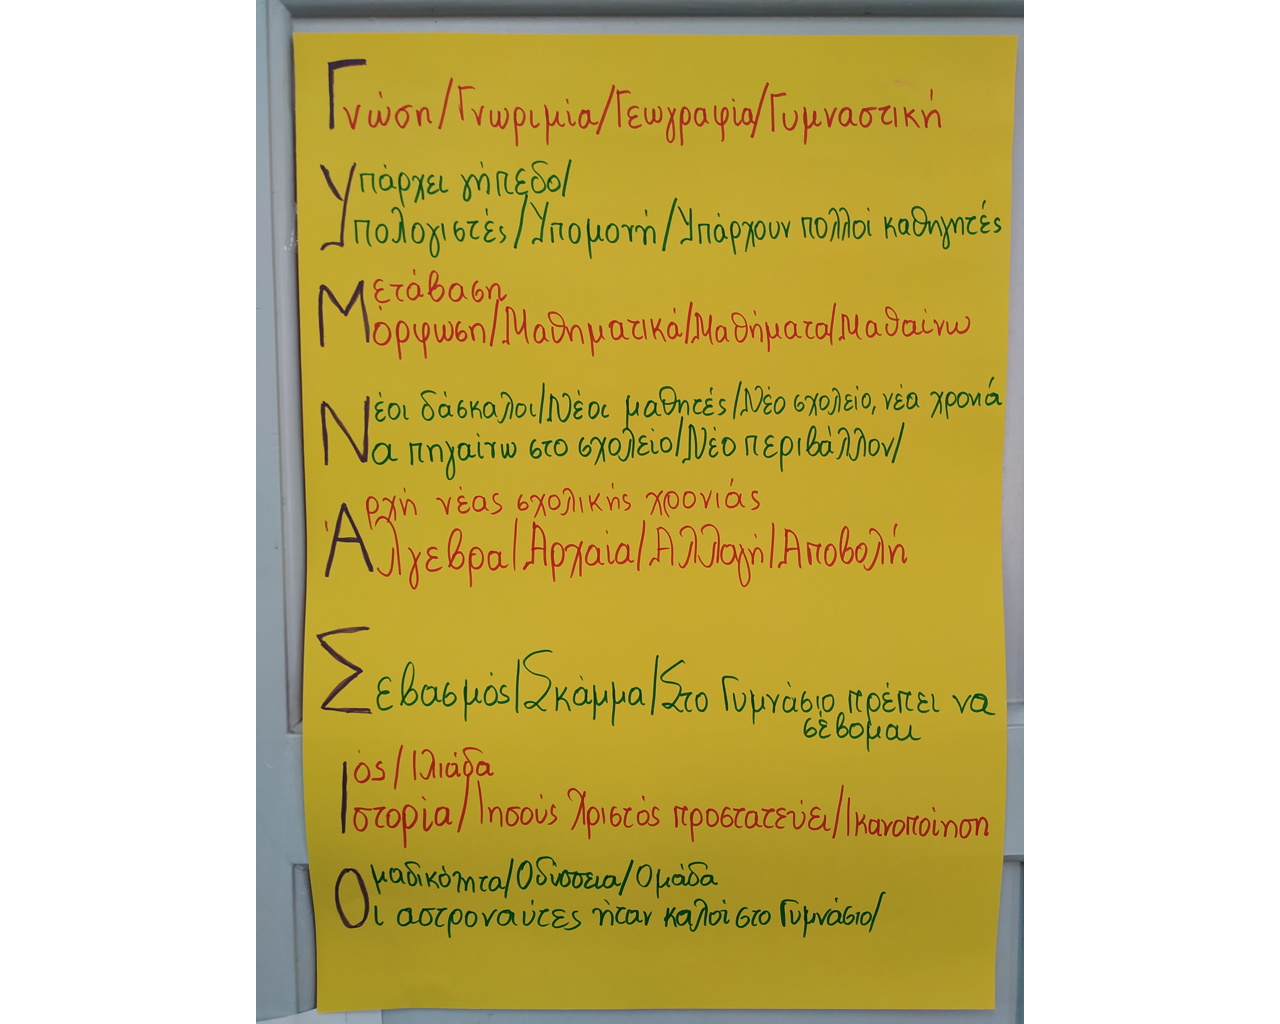 Γνώση/Γνωριμία/Γεωγραφία/Γυμναστική
Υπάρχει γήπεδο/
Υπολογιστές/Υπομονή/Υπάρχουν πολλοί καθηγητές
Μετάβαση
Μόρφωση/Μαθηματικά/Μαθήματα/Μαθαίνω
Νέοι δάσκαλοι/Νέοι μαθητές/Νέο σχολείο, νέα χρονιά
Να πηγαίνω στο σχολείο/Νέο περιβάλλον/
Αρχή νέας σχολικής χρονιάς
Άλγεβρα/Αρχαία/Αλλαγή/Αποβολή
Σεβασμός/Σκάμμα/Στο Γυμνάσιο πρέπει να
σέβομαι
Ιός/Ιλιάδα
Ιστορία/Ιησούς Χριστός προστατεύει/Ικανοποίηση
Ομαδικότητα/Οδύσσεια/Ομάδα
Οι αστροναύτες ήταν καλοί στο Γυμνάσιο/